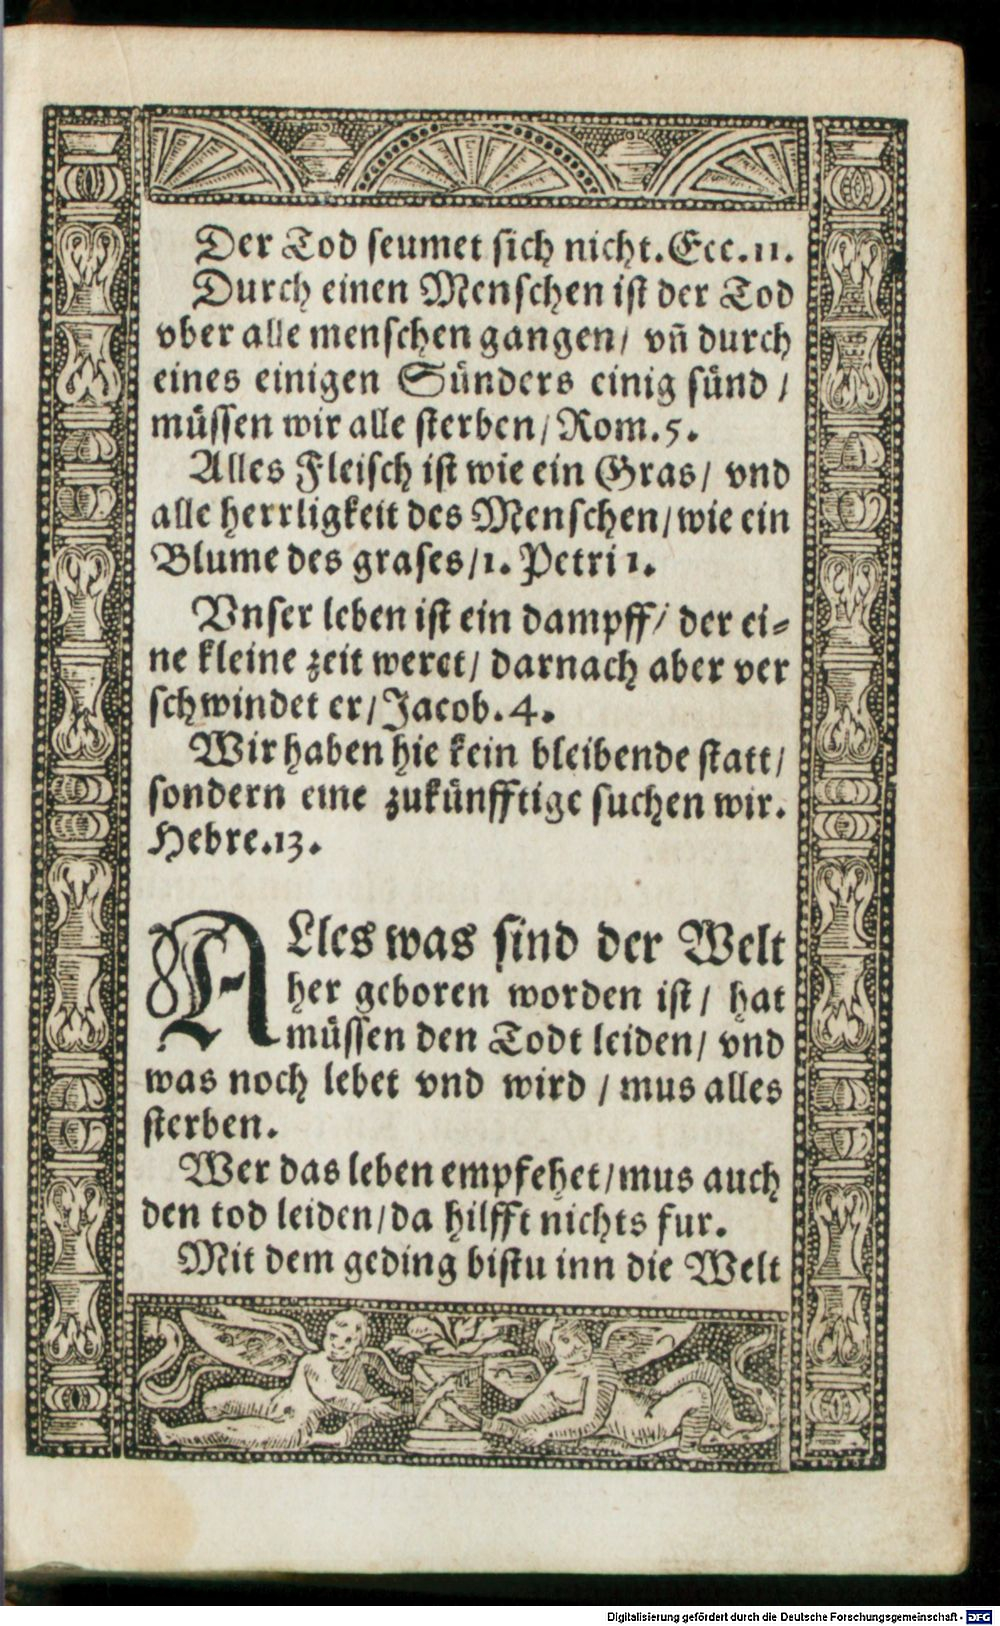 Der Tod seumet sich nicht. Ecc. 11.
Durch einen Menschen ist der Tod
vber alle menschen gangen/ vñ durch
eines einigen Sünders einig sünd /
müssen wir alle sterben/ Rom. 5.
Alles Fleisch ist wie ein Gras/ vnd
alle herrligkeit des Menschen/ wie ein
Blume des grases/ 1. Petri 1.
Vnser leben ist ein dampff/ der ei⸗
ne kleine zeit weret/ darnach aber ver
schwindet er/ Jacob. 4.
Wir haben hie kein bleibende statt/
sondern eine zukünfftige suchen wir.
Hebre. 13.
ALles was sind der Welt
her geboren worden ist/ hat
müssen den Todt leiden/ vnd
was noch lebet vnd wird / mus alles
sterben.
Wer das leben empfehet/ mus auch
den tod leiden/ da hilfft nichts fur.
Mit dem geding bistu inn die Welt
Digitalisierung gefördert durch die Deutsche Forschungsgemeinschaft - DFG